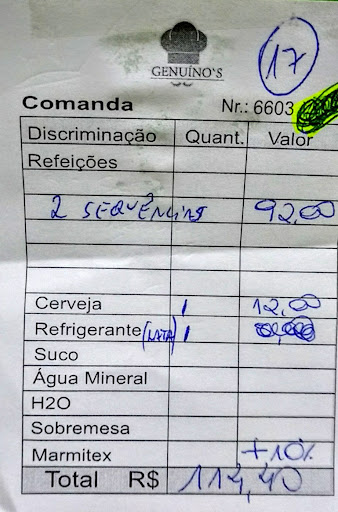 GENUÍNO'S
17
Comanda Nr.: 6603
Discriminação Quant. Valor
Refeições
2 SEQUÊNCIAS 92,00
Cerveja 1 12,00
Refrigerante (LATA) 1
Suco
Água Mineral
H2O
Sobremesa
Marmitex +10%
Total R$ 114,40